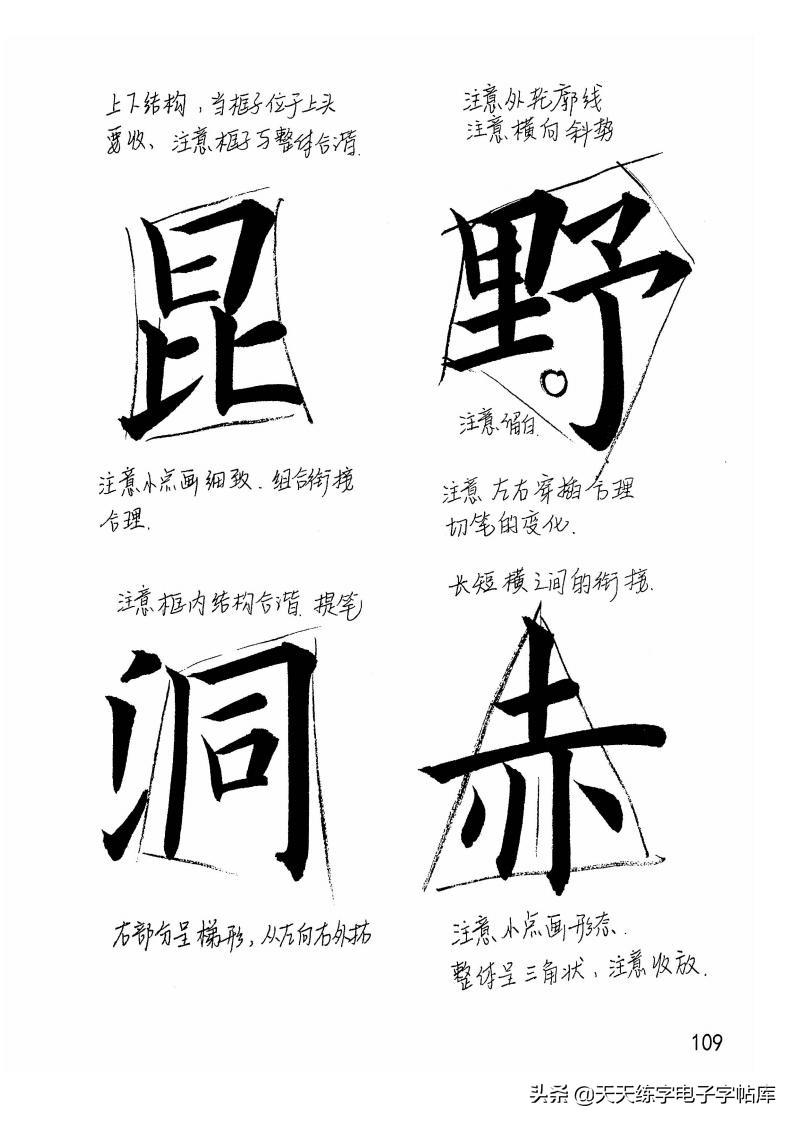 上下结构，当框子位于上头
要收、注意框子与整体合谐.
昆
注意小点画细致.组合衔接
合理.
注意外轮廓线
注意横向斜势
野
注意留白.
注意左右穿插合理
切笔的变化.
注意框内结构合谐.提笔
洞
右部分呈梯形，从左向右外拓
长短横之间的衔接.
赤
注意小点画形态.
整体呈三角状、注意收放.
109
头条 @天天练字电子字帖库